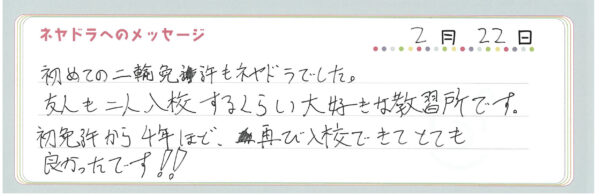 ネヤドラへのメッセージ
2月22日
初めての二輪免許もネヤドラでした。
友人も二人入校するくらい大好きな教習所です。
初免許から4年ほど、再び入校できてとても
良かったです!!